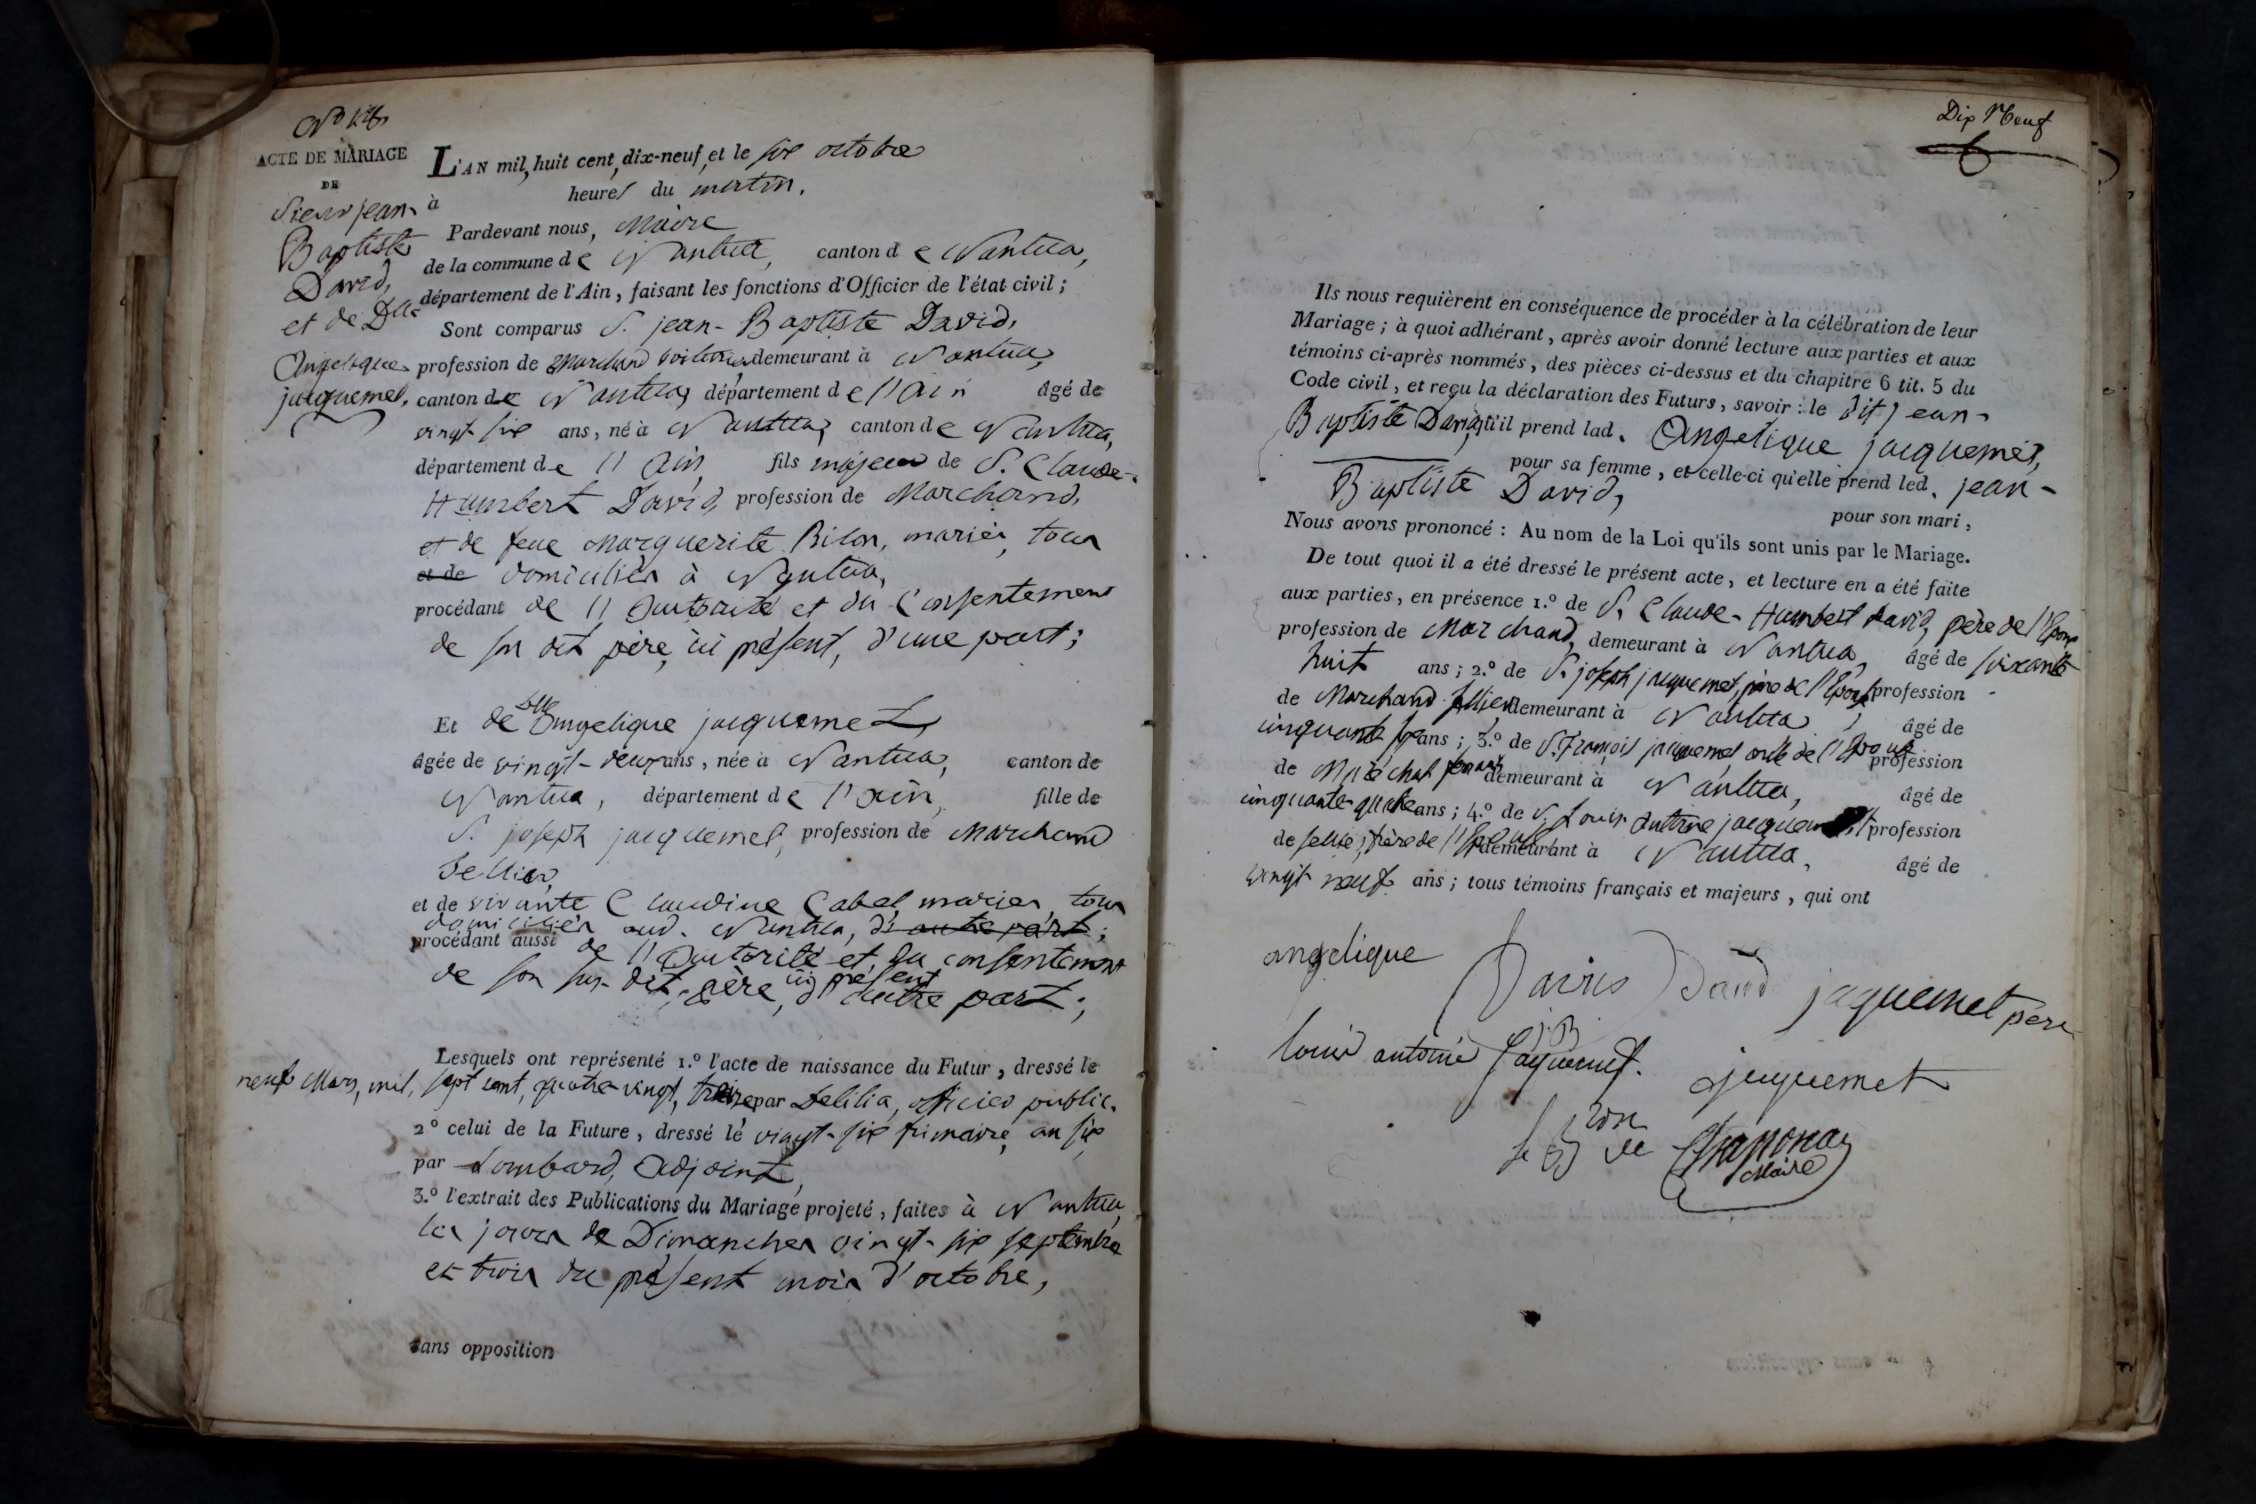 ACTE DE MARIAGE
DE
Sieur jean-
Baptiste
David,
et de Dlle
Angelique
jacquemet,
L'AN mil, huit cent, dix-neuf, et le six octobre
à heures du matin,
Pardevant nous, Maire
de la commune de Nantua, canton de Nantua,
département de l'Ain, faisant les fonctions d'Officier de l'état civil;
Sont comparus S. jean-Baptiste David,
profession de Marchand demeurant à Nantua,
canton de Nantua, département de l'Ain âgé de
vingt six ans, né à Nantua, canton de Nantua,
département de l'Ain, fils majeur de S. Claude-
Humbert David, profession de Marchand,
et de feue Marguerite Bilon, mariés, tous
et de domiciliés à Nantua,
procédant de l'Autorité et du Consentement
de son dit père, ici présent, d'une part;
Et de Dlle Angelique jacquemet,
âgée de vingt-deux ans, née à Nantua, canton de
Nantua, département de l'Ain, fille de
S. joseph jacquemet, profession de Marchand
Sellier,
et de vivante Claudine Cabet, mariés, tous
domiciliés aud. Nantua, d'autre part;
procédant aussi de l'Autorité et du consentement
de son sus-dit père, ici présent, d'autre part;
Lesquels ont représenté 1.º l'acte de naissance du Futur, dressé le
neuf Mars, mil, sept cent, quatre vingt, treize par Delilia, officier public.
2º celui de la Future, dressé le vingt-six frimaire, an six
par Lombard, Adjoint,
3.º l'extrait des Publications du Mariage projeté, faites à Nantua
les jours de Dimanches vingt-six septembre
et trois du présent mois d'octobre,
sans opposition
Dix Neuf
Ils nous requièrent en conséquence de procéder à la célébration de leur
Mariage; à quoi adhérant, après avoir donné lecture aux parties et aux
témoins ci-après nommés, des pièces ci-dessus et du chapitre 6 tit. 5 du
Code civil, et reçu la déclaration des Futurs, savoir: le dit jean-
Baptiste David, qu'il prend lad. Angelique jacquemet,
pour sa femme, et celle-ci qu'elle prend led. jean-
Baptiste David, pour son mari,
Nous avons prononcé: Au nom de la Loi qu'ils sont unis par le Mariage.
De tout quoi il a été dressé le présent acte, et lecture en a été faite
aux parties, en présence 1.º de S. Claude-Humbert David, père de l'Epoux
profession de Marchand, demeurant à Nantua, âgé de soixante
huit ans; 2.º de S. joseph jacquemet, père de l'Epouse profession
de Marchand Sellier demeurant à Nantua, âgé de
cinquante six ans; 3.º de S. François jacquemet oncle de l'Epouse profession
de Maréchal ferrant demeurant à Nantua, âgé de
cinquante-quatre ans; 4.º de S. Louis Antoine jacquemet profession
de sellier, frère de l'Epouse demeurant à Nantua, âgé de
vingt neuf ans; tous témoins français et majeurs, qui ont
angelique
David jaquemet pere
louis antoine Jaquemet.
jaquemet
le Bon de
Maire